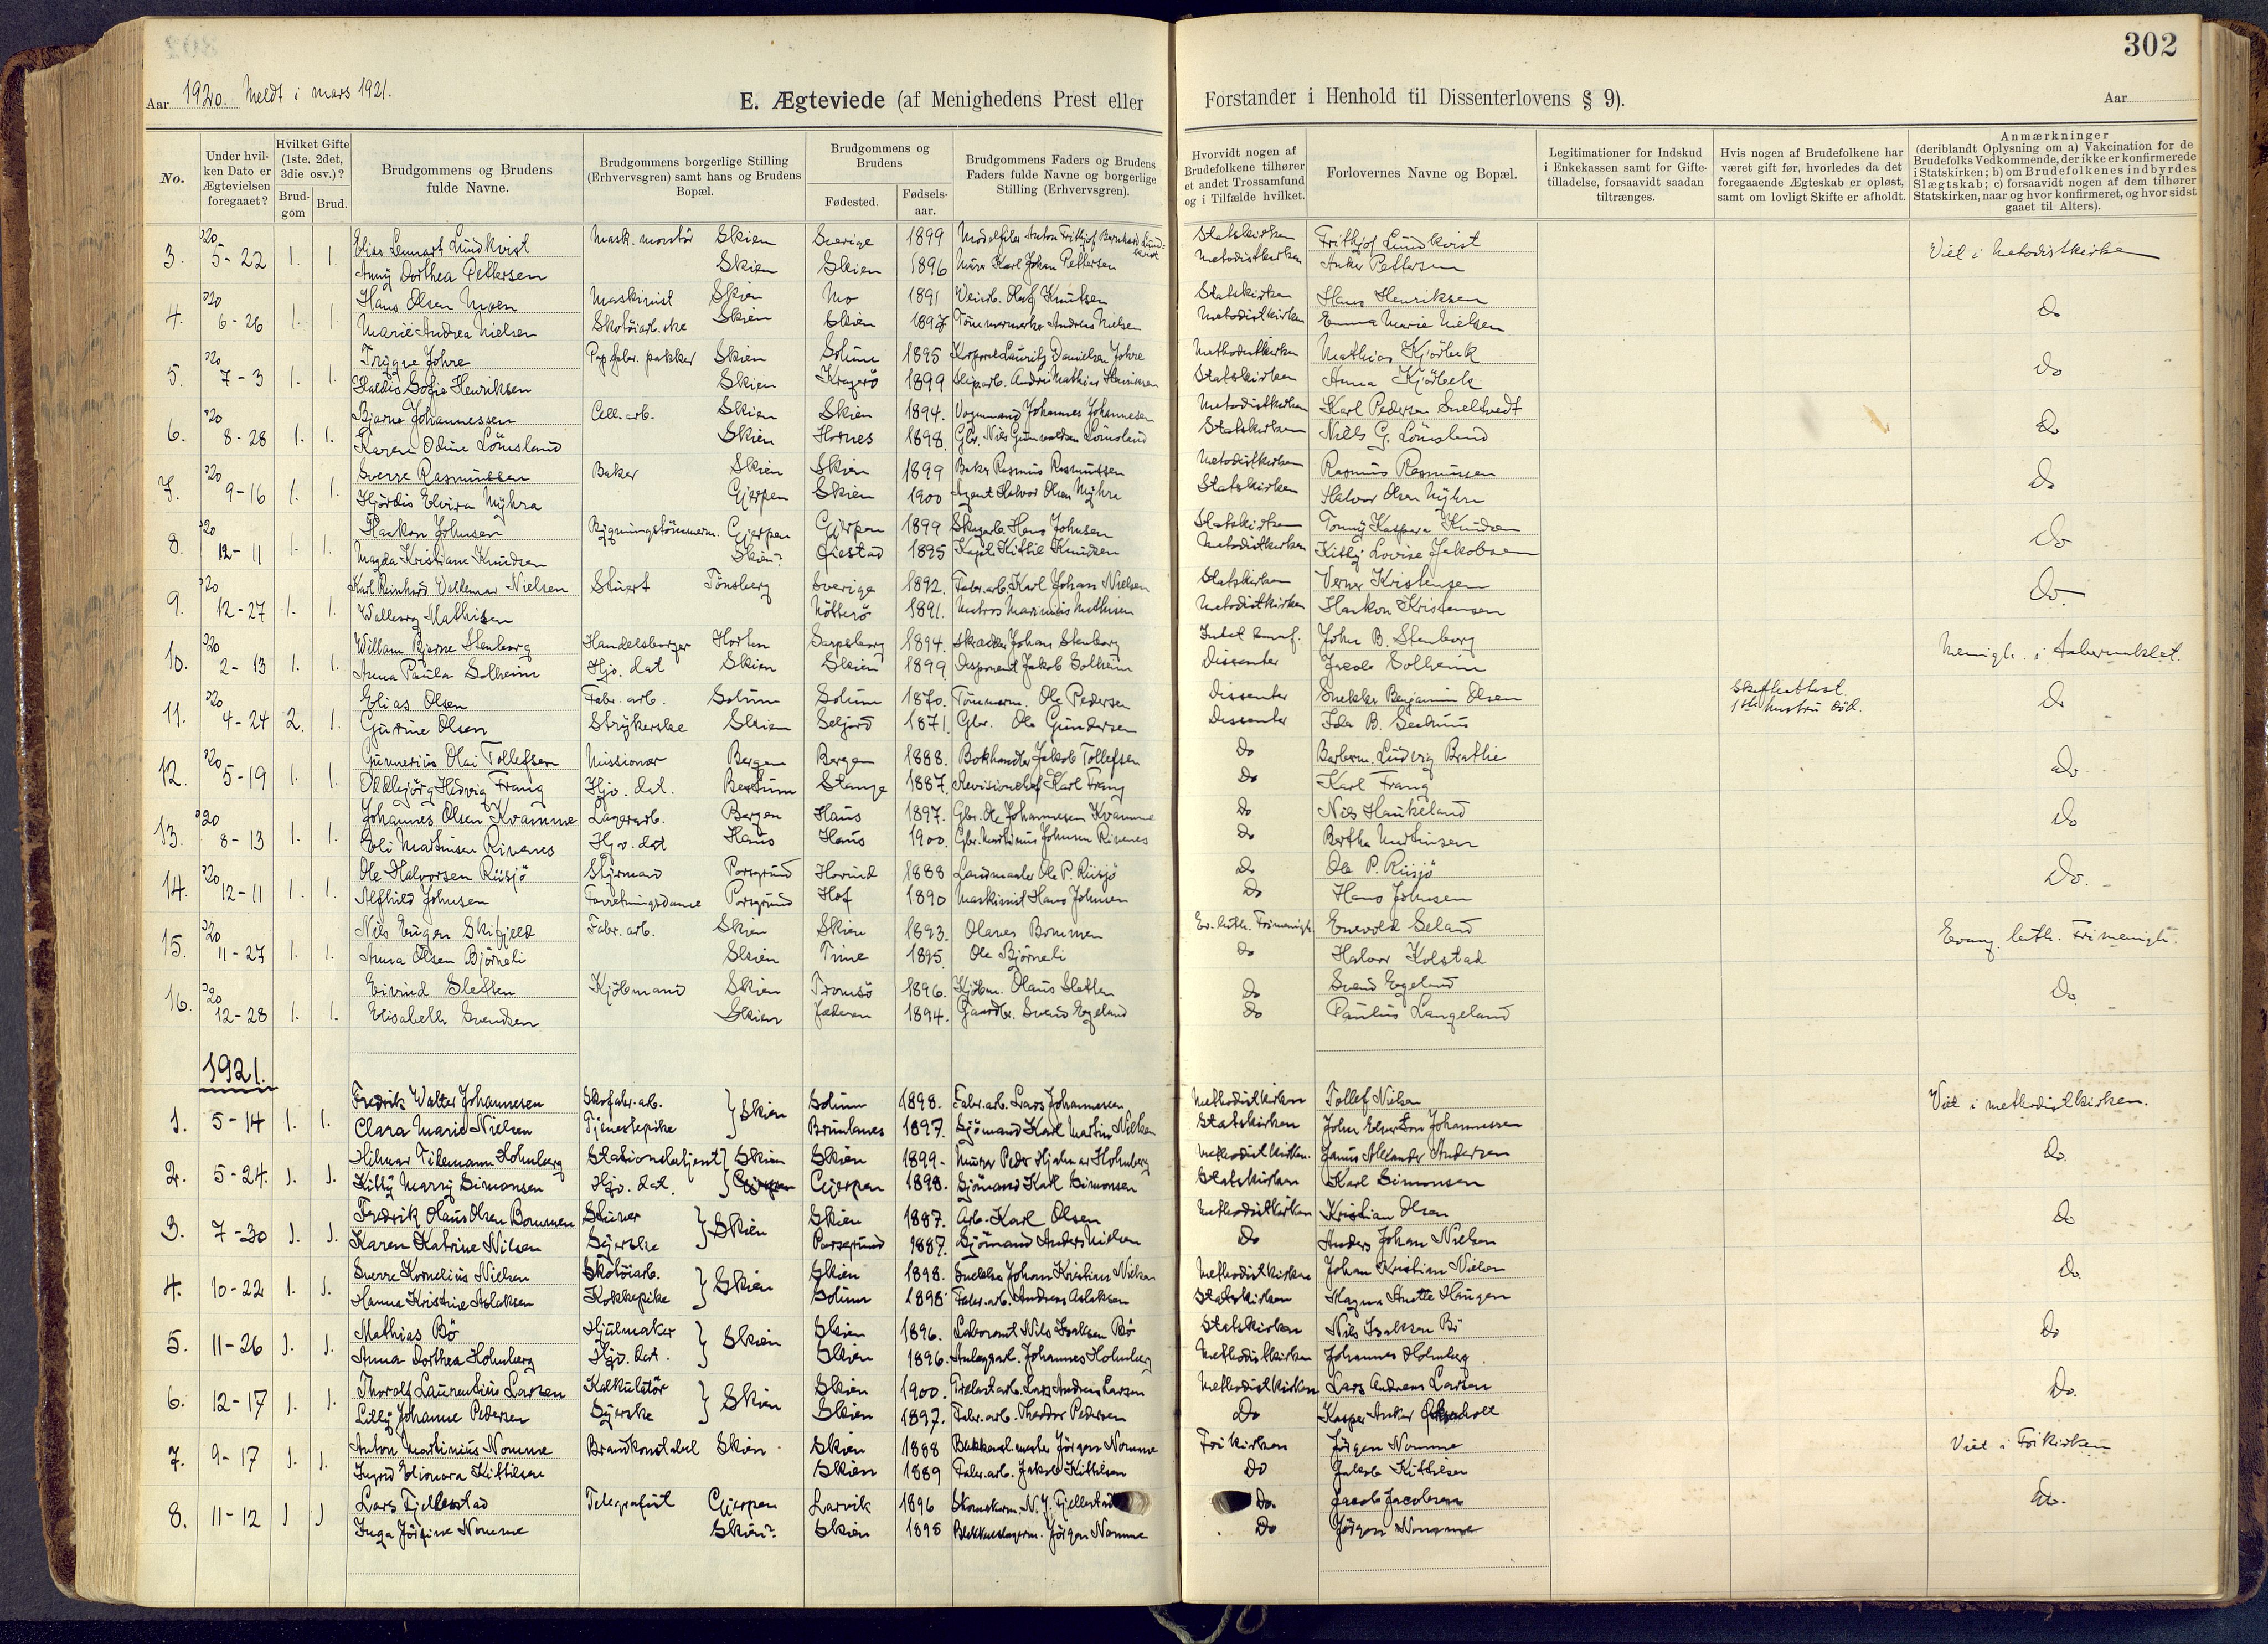 302
Aar 1920. Meldt i mars 1921.
E. Ægteviede (af Menighedens Prest eller Forstander i Henhold til Dissenterlovens § 9).
Aar
No.
Under hvilken Dato er Ægtevielsen foregaaet?
Hvilket Gifte (1ste. 2det, 3die osv.)?
Brudgom
Brud.
Brudgommens og Brudens fulde Navne.
Brudgommens borgerlige Stilling (Erhvervsgren) samt hans og Brudens Bopæl.
Brudgommens og Brudens
Fødested.
Fødselsaar.
Brudgommens Faders og Brudens Faders fulde Navne og borgerlige Stilling (Erhvervsgren).
Hvorvidt nogen af Brudefolkene tilhører et andet Trossamfund og i Tilfælde hvilket.
Forlovernes Navne og Bopæl.
Legitimationer for Indskud i Enkekassen samt for Giftetilladelse, forsaavidt saadan tiltrænges.
Hvis nogen af Brudefolkene har været gift før, hvorledes da det foregaaende Ægteskab er opløst, samt om lovligt Skifte er afholdt.
Anmærkninger (deriblandt Oplysning om a) Vakcination for de Brudefolks Vedkommende, der ikke er konfirmerede i Statskirken; b) om Brudefolkenes indbyrdes Slægtskab; c) forsaavidt nogen af dem tilhører Statskirken, naar og hvor konfirmeret, og hvor sidst gaaet til Alters).
3. 1920 5-22 1. 1. Elias Lennart Lundkvist Mask. montör Skien Sverige 1899 Anton Frithjof Bernhard Lundkvist Statskirken Frithjof Lundkvist Viet i Metodistkirken
Anny Dorthea Pettersen Skien Skien 1896 Murer Karl Johan Pettersen Metodistkirken Anker Pettersen
4. 1920 6-26 1. 1. Hans Olsen Moen Maskinist Skien Mo 1891 Veiarb. Olaf Knutsen Statskirken Hans Henriksen Do
Marie Andrea Nielsen Skotöiarb.ske Skien Skien 1897 Tömmermerker Andreas Nielsen Metodistkirken Emma Marie Nielsen
5. 1920 7-3 1. 1. Trygve Johre Pap.fabr. pakker Skien Solum 1895 Lauritz Danielsen Johre Methodistkirken Mathias Kjörbek Do
Haldis Sofie Henriksen Skien Kragerö 1899 Sliparb. Andr. Mathias Henriksen Statskirken Anna Kjörbek
6. 1920 8-28 1. 1. Bjarne Johannessen Cell. arb. Skien Skien 1894. Vognmand Johannes Johannesen Metodistkirken Karl Pedersen Sneltvedt Do
Karen Odine Lömsland Skien Hornes 1898. Gbr. Nils Gunvaldsen Lömsland Statskirken Niels G. Lömsland
7. 1920 9-16 1. 1. Sverre Rasmussen Baker Skien Skien 1899 Baker Rasmus Rasmussen Metodistkirken Rasmus Rasmussen Do
Hjördis Elvira Myhra Gjerpen Skien 1900 Agent Halvor Olsen Myhra Statskirken Halvor Olsen Myhra
8. 1920 12-11 1. 1. Haakon Johnsen Bygningstömmerm. Gjerpen Gjerpen 1899 Skogarb. Hans Johnsen Statskirken Tonny Kaspara Knudsen Do
Magda Kristiane Knudsen Skien Öiestad 1895 Kapt. Kittil Knudsen Metodistkirken Kitty Lovise Jakobsen
9. 1920 12-27 1. 1. Karl Reinhard Valdemar Nielsen Stuert Tönsberg Sverige 1892. Fabr.arb. Karl Johan Nielsen Statskirken Verner Kristensen Do.
Walborg Mathisen Nötterö 1891. Matros Marinius Mathisen Metodistkirken Haakon Kristensen
10. 1920 2-13 1. 1. William Bjarne Stenborg Handelsborger Horten Sarpsborg 1894. Skrædder Johan Stenborg John B. Stenborg Menigh. i Tabernaklet.
Anna Paula Solheim Hjv. dat Skien Skien 1899 Disponent Jakob Solheim Dissenter Jacob Solheim
11. 1920 4-24 2. 1. Elias Olsen Fabr. arb. Solum Solum 1870. Tömmerm. Ole Pedersen Dissenter Snekker Benjamin Olsen Skifteattest. 1ste hustru död. Do
Gurine Olsen Strykerske Skien Seljord 1871. Gbr. Ole Gundersen Dissenter Ida B.
12. 1920 5-19 1. 1. Gunnerius Olai Tollefsen Missionær Bergen Bergen 1888. Bokhandler Jakob Tollefsen Do Barberm. Ludvig Brathe do.
Oddbjörg Hedvig Frang Hjv. dat. Bærum Stange 1887. Revisionschef Karl Frang Do Karl Frang
13. 1920 8-13 1. 1. Johannes Olsen Kvamme Lagerarb. Bergen Haus 1897. Gbr. Ole Johannesen Kvamme Do Nils Haukeland Do
Eli Martinsen Rivenes Hjv. dat Haus Haus 1900. Gbr. Martinus Johnsen Rivenes Do Bertha Martinsen
14. 1920 12-11 1. 1. Ole Halvorsen Riisjö Styrmand Porsgrund Hovind 1888 Landmaaler Ole P. Riisjö Do Ole P. Riisjö Do.
Alfhild Johnsen Forretningsdame Porsgrund Hof 1890 Maskinist Hans Johnsen Do Hans Johnsen
15. 1920 11-27 1. 1. Nils Eugen Skifjeld Fabr. arb. Skien Skien 1893. Olaves Bommen Ev. luth. Frimenigh. Enevold Seland Evang. luth. Frimenigh.
Anna Olsen Björneli Skien Time 1895. Ole Björneli Do Halvor Kolstad
16. 1920 12-28 1. 1. Eivind Sletten Kjöbmand Skien Tromsö 1896. Kjöbm. Olaus Sletten Do Svend Egeland Do.
Elisabeth Svendsen Skien Jæderen 1894. Gaardbr. Svend Egeland Do Paulus Langeland
1921.
1. 5-14 1. 1. Fredrik Walter Johannesen Skofabr.arb. } Skien Solum 1898. Fabr.arb. Lars Johannessen Methodistkirken Tollef Nielsen Viet i methodistkirken.
Clara Marie Nielsen Tjenestepike Brunlanes 1897. Sjömand Karl Martin Nielsen Statskirken John Edvard Johannessen
2. 5-24. 1. 1. Hilmar Tidemann Holmberg Stationsbetjent } Skien Skien 1899. Murer Peder Hjalmar Holmberg Methodistkirken. Janus Alexander Andersen Do.
Kitty Marry Simonsen Hjv. dat. Gjerpen Gjerpen 1898. Sjömand Karl Simonsen Statskirken Karl Simonsen
3. 7-30 1. 1. Fredrik Olaus Olsen Bommen Stuer } Skien Skien 1887. Arb. Karl Olsen Methodistkirken Kristian Olsen Do
Karen Katrine Nilsen Syerske Porsgrund 1887. Sjömand Anders Nielsen Do Anders Johan Nielsen
4. 10-22 1. 1. Sverre Kornelius Nielsen Skotöiarb. } Skien Skien 1898. Snekker Johan Kristian Nielsen Methodistkirken Johan Kristian Nielsen Do.
Hanna Kristine Aslaksen Kokkepike Solum 1898 Fabr.arb. Andreas Aslaksen Statskirken Magna Anette Haugen
5. 11-26 1. 1. Mathias Bö Hjulmaker } Skien Skien 1896. Laborant Nils Isaksen Bö Statskirken Nils Isaksen Bö Do
Anna Dorthea Holmberg Hjv. dat. Skien 1896. Anlægsarb. Johannes Holmberg Methodistkirken Johannes Holmberg
6. 12-17 1. 1. Thorolf Laurentius Larsen Kalkulatör } Skien Skien 1900. Trælastarb. Lars Andreas Larsen Methodistkirken Lars Andreas Larsen Do.
Lilly Johanne Pedersen Syerske Skien 1897. Fabr.arb. Theodor Pedersen Do Kasper Anker
7. 9-17 1. 1. Anton Martinius Nomme Brandkonstabel Skien Skien 1888 Blikkensl.mester Jörgen Nomme Frikirken Jörgen Nomme Viet i Frikirken
Ingrid Elionora Kittilsen Skien 1889 Fabr.arb. Jakob Kittilsen Do Jakob Kittilsen
8. 11-12 1 1 Lars Fjellestad Telegrafist Gjerpen Larvik 1896 Skomakerm. N. J. Fjellestad Do. Jacob Jacobsen Do.
Inga Jörgine Nomme Skien Skien 1895 Blikkenslagerm. Jörgen Nomme Do Jörgen Nomme